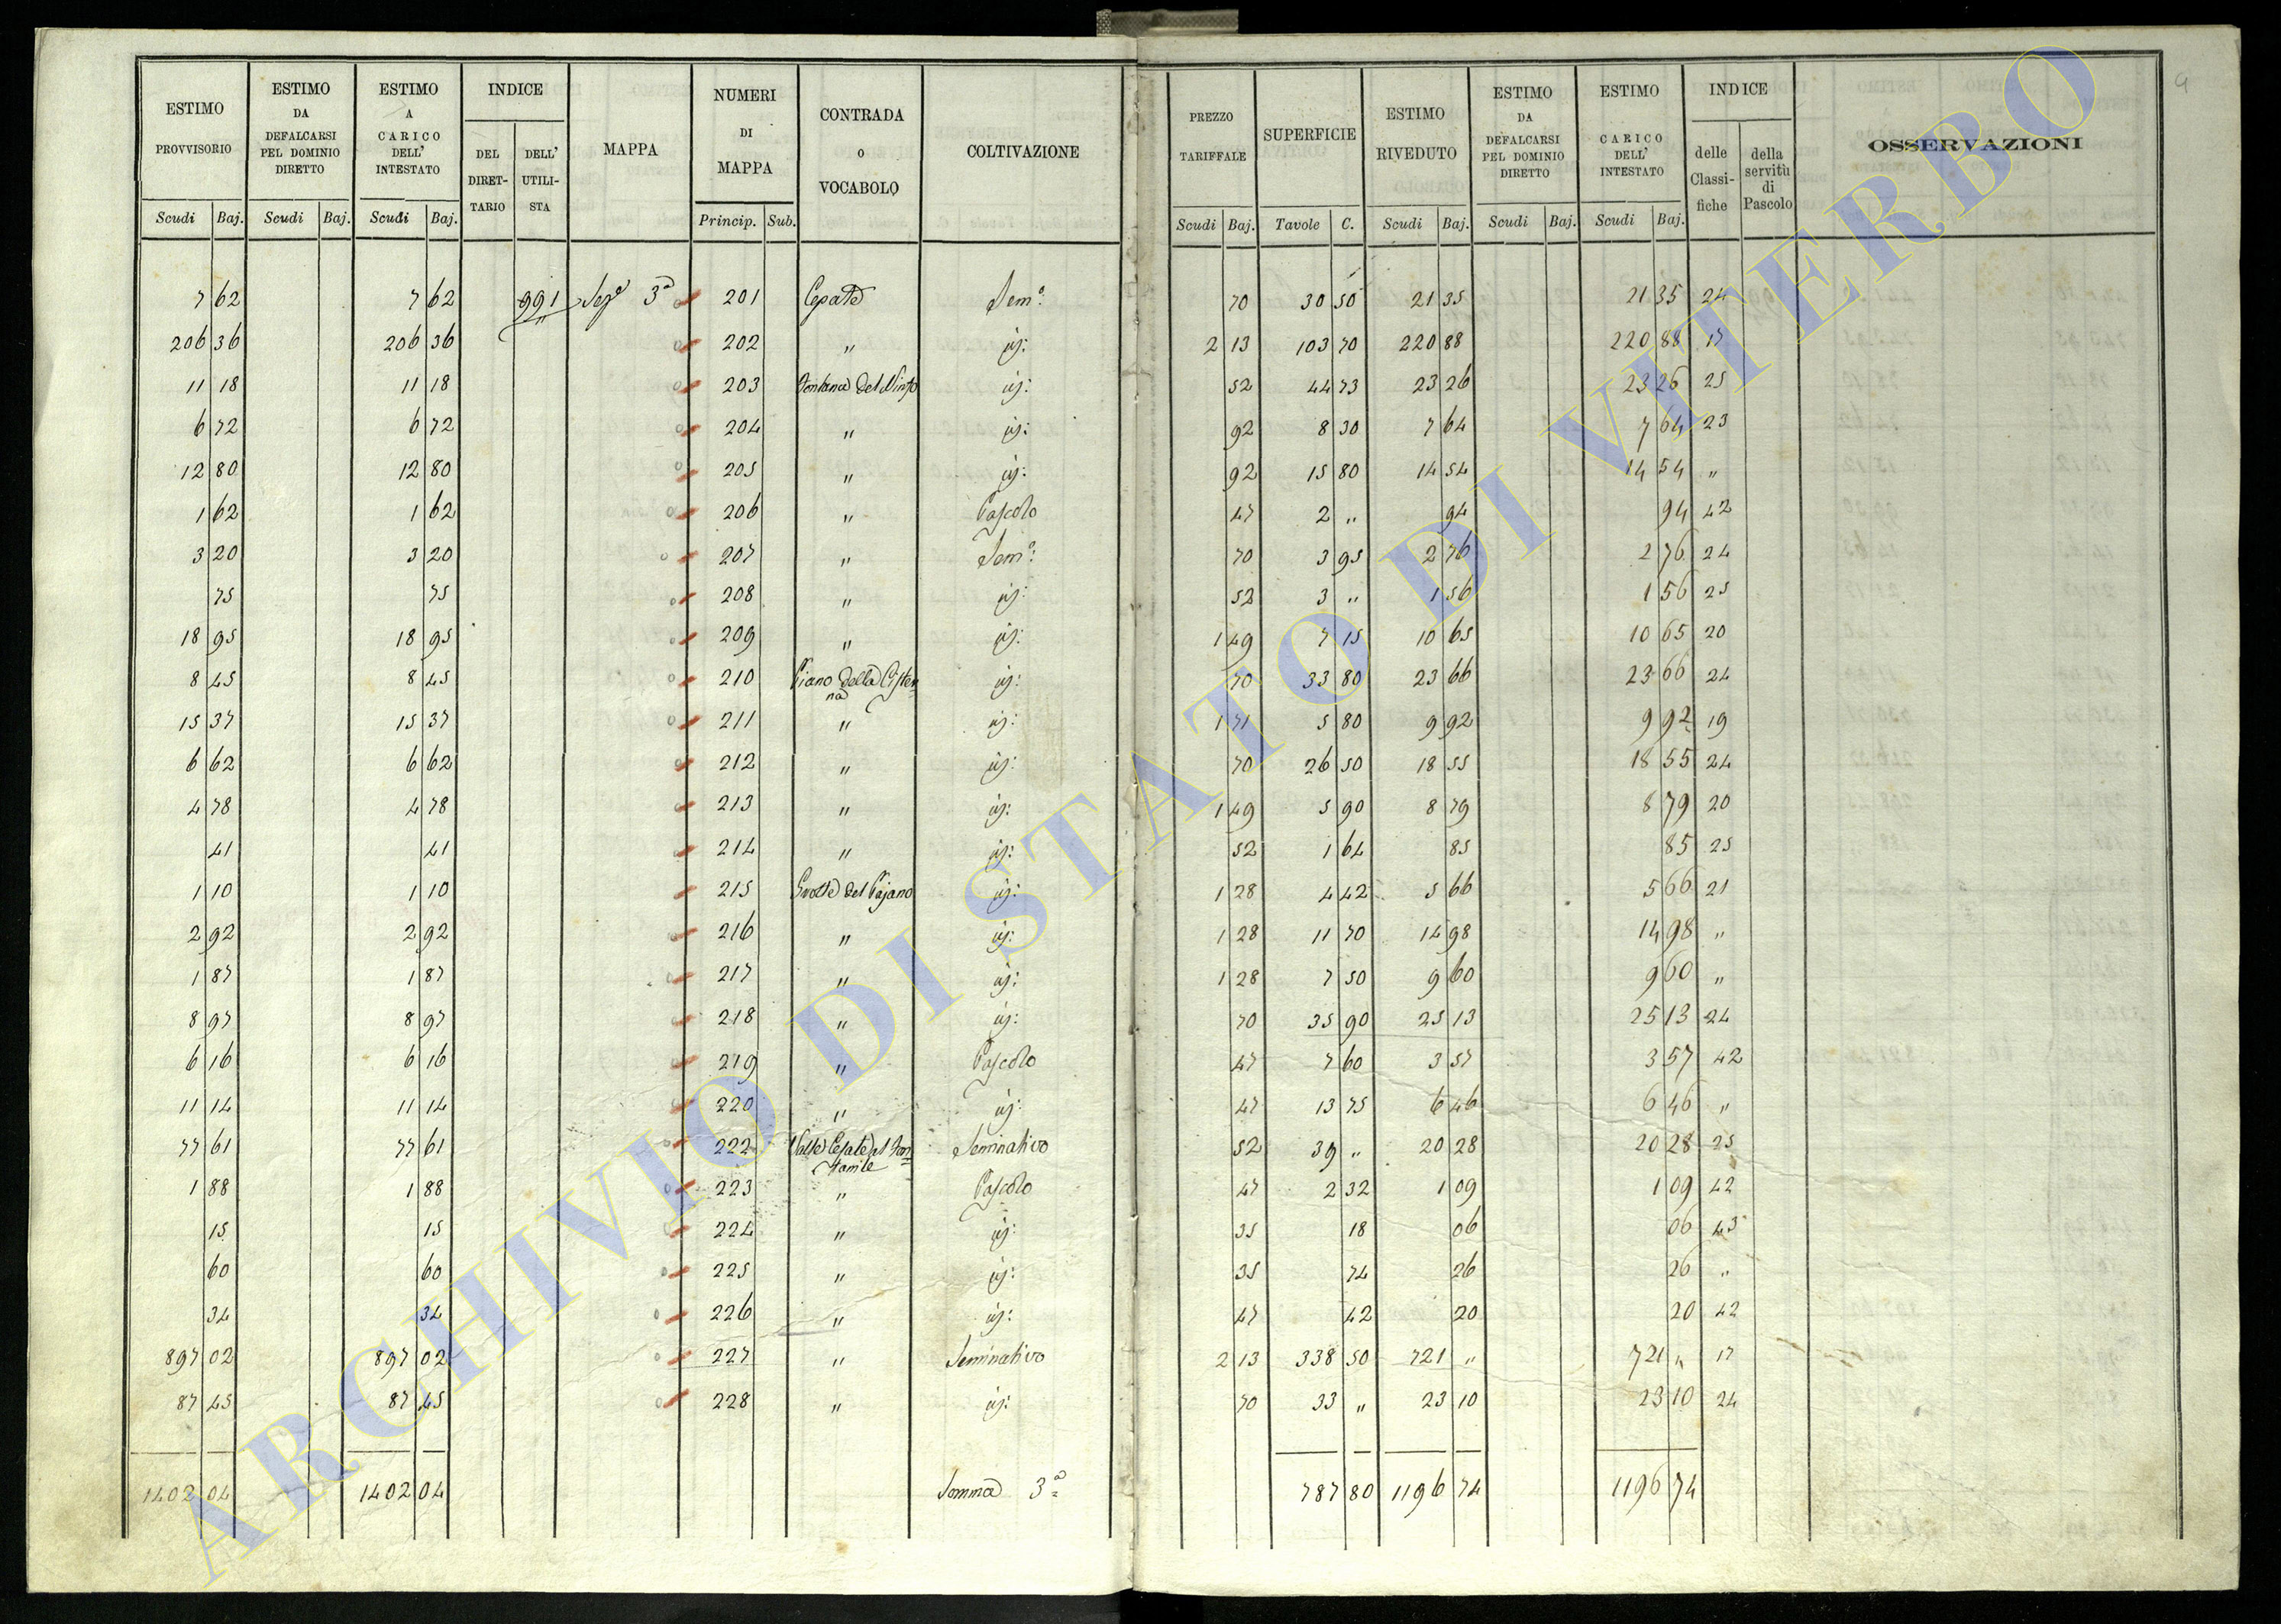 ESTIMO PROVVISORIO | ESTIMO DA DEFALCARSI PEL DOMINIO DIRETTO | ESTIMO A CARICO DELL' INTESTATO | INDICE | MAPPA | NUMERI DI MAPPA | CONTRADA O VOCABOLO | COLTIVAZIONE | PREZZO TARIFFALE | SUPERFICIE | ESTIMO RIVEDUTO | ESTIMO DA DEFALCARSI PEL DOMINIO DIRETTO | ESTIMO CARICO DELL' INTESTATO | INDICE | OSSERVAZIONI
DEL DIRET-TARIO | DELL' UTILI-STA | delle Classi-fiche | della servitù di Pascolo
Scudi Baj. | Scudi Baj. | Scudi Baj. | Princip. Sub. | Scudi Baj. | Tavole C. | Scudi Baj. | Scudi Baj. | Scudi Baj.
7 62 | 7 62 | 991 | Sez.e 3a | 201 | Cepate | Sem.o: | 70 | 30 50 | 21 35 | 21 35 | 24
206 36 | 206 36 | 202 | " | id: | 2 13 | 103 70 | 220 88 | 220 88 | 17
11 18 | 11 18 | 203 | Fontana del | id: | 52 | 44 73 | 23 26 | 23 26 | 25
6 72 | 6 72 | 204 | " | id: | 92 | 8 30 | 7 64 | 7 64 | 23
12 80 | 12 80 | 205 | " | id: | 92 | 15 80 | 14 54 | 14 54 | "
1 62 | 1 62 | 206 | " | Pascolo | 47 | 2 " | 94 | 94 | 42
3 20 | 3 20 | 207 | " | Sem.o: | 70 | 3 95 | 2 76 | 2 76 | 24
75 | 75 | 208 | " | id: | 52 | 3 " | 1 56 | 1 56 | 25
18 95 | 18 95 | 209 | " | id: | 1 49 | 7 15 | 10 65 | 10 65 | 20
8 45 | 8 45 | 210 | Piano della Cister=na | id: | 70 | 33 80 | 23 66 | 23 66 | 24
15 37 | 15 37 | 211 | " | id: | 1 71 | 5 80 | 9 92 | 9 92 | 19
6 62 | 6 62 | 212 | " | id: | 70 | 26 50 | 18 55 | 18 55 | 24
4 78 | 4 78 | 213 | " | id: | 1 49 | 5 90 | 8 79 | 8 79 | 20
41 | 41 | 214 | " | id: | 52 | 1 64 | 85 | 85 | 25
1 10 | 1 10 | 215 | Grotte del Pajano | id: | 1 28 | 4 42 | 5 66 | 5 66 | 21
2 92 | 2 92 | 216 | " | id: | 1 28 | 11 70 | 14 98 | 14 98 | "
1 87 | 1 87 | 217 | " | id: | 1 28 | 7 50 | 9 60 | 9 60 | "
8 97 | 8 97 | 218 | " | id: | 70 | 35 90 | 25 13 | 25 13 | 24
6 16 | 6 16 | 219 | " | Pascolo | 47 | 7 60 | 3 57 | 3 57 | 42
11 14 | 11 14 | 220 | " | id: | 47 | 13 75 | 6 46 | 6 46 | "
77 61 | 77 61 | 222 | Valle Cepate al Fon=tanile | Seminativo | 52 | 39 " | 20 28 | 20 28 | 25
1 88 | 1 88 | 223 | " | Pascolo | 47 | 2 32 | 1 09 | 1 09 | 42
15 | 15 | 224 | " | id: | 35 | 18 | 06 | 06 | 43
60 | 60 | 225 | " | id: | 35 | 74 | 26 | 26 | "
34 | 34 | 226 | " | id: | 47 | 42 | 20 | 20 | 42
897 02 | 897 02 | 227 | " | Seminativo | 2 13 | 338 50 | 721 " | 721 " | 17
87 45 | 87 45 | 228 | " | id: | 70 | 33 " | 23 10 | 23 10 | 24
1402 04 | 1402 04 | Somma 3a | 787 80 | 1196 74 | 1196 74
ARCHIVIO DI STATO DI VITERBO